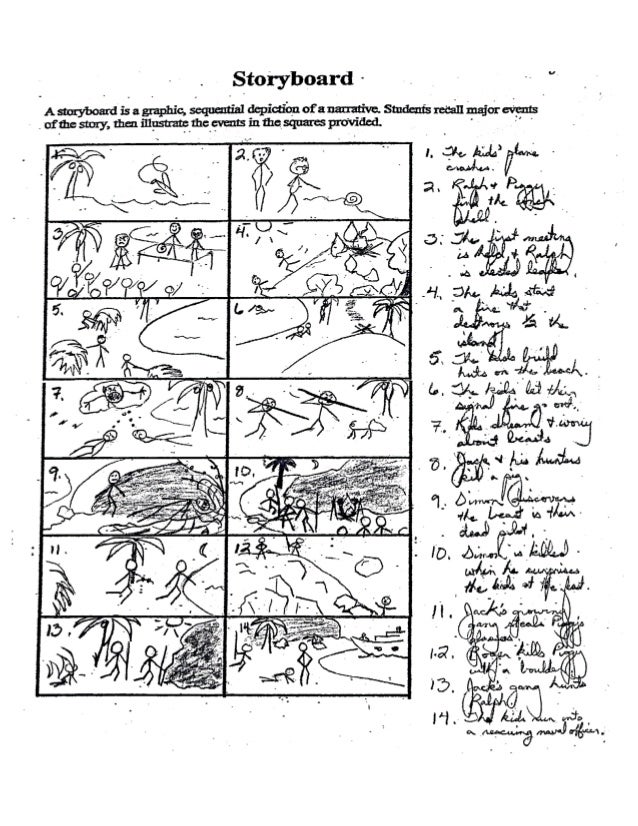 Storyboard
A storyboard is a graphic, sequential depiction of a narrative. Students recall major events
of the story, then illustrate the events in the squares provided.
1.
2.
3.
4.
5.
6
7.
8
9.
10.
11.
12
13.
14
1. The kids' plane
crashes.
2. Ralph & Piggy
find the conch
shell.
3. The first meeting
is held & Ralph
is elected leader.
4. The kids start
a fire that
destroys 1/2 the
island
5. The kids build
huts on the beach.
6. The kids let their
signal fire go out.
7. Kids dream & worry
about beasts
8. Jack & his hunters
kill a pig.
9. Simon discovers
the beast is their
dead pilot.
10. Simon is killed
when he surprises
the kids at the
11. Jack's growing
gang steals Piggy's
glasses
12. Roger kills Piggy
with a boulder
13. Jack's gang hunts
Ralph.
14. The kids run into
a rescuing naval officer.